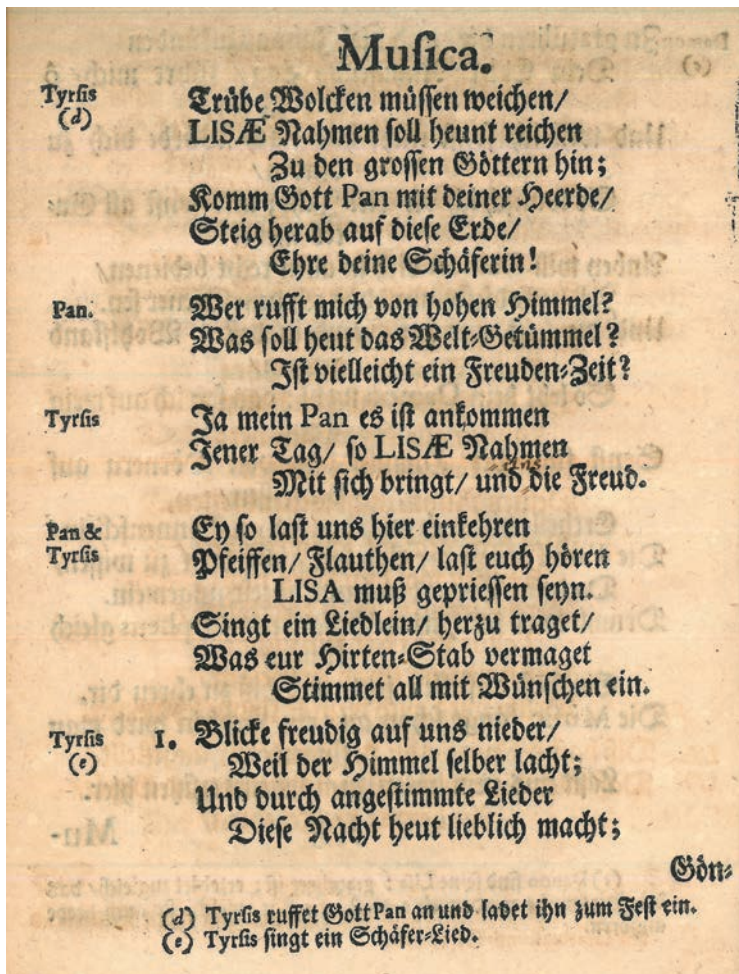 Muſica.
Tyrſis (d) Trübe Wolcken müſſen weichen/
LISÆ Nahmen ſoll heunt reichen
Zu den groſſen Göttern hin;
Komm Gott Pan mit deiner Heerde/
Steig herab auf dieſe Erde/
Ehre deine Schäferin!
Pan. Wer rufft mich von hohen Himmel?
Was ſoll heut das Welt-Getümmel?
Iſt vielleicht ein Freuden-Zeit?
Tyrſis Ja mein Pan es iſt ankommen
Jener Tag/ ſo LISÆ Nahmen
Mit ſich bringt/ und die Freud.
Pan & Tyrſis Ey ſo laſt uns hier einkehren
Pfeiffen/ Flauthen/ laſt euch hören
LISA muß geprieſſen ſeyn.
Singt ein Liedlein/ herzu traget/
Was eur Hirten-Stab vermaget
Stimmet all mit Wünſchen ein.
Tyrſis (e) 1. Blicke freudig auf uns nieder/
Weil der Himmel ſelber lacht;
Und durch angeſtimmte Lieder
Dieſe Nacht heut lieblich macht;
Gön-
(d) Tyrſis ruffet Gott Pan an und ladet ihn zum Feſt ein.
(e) Tyrſis ſingt ein Schäfer-Lied.